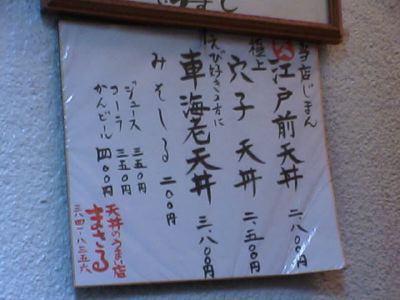 当店じまん
江戸前天丼 二、八〇〇円
極上
穴子天丼 二、五〇〇円
えび好きの方に
車海老天丼 三、八〇〇円
みそしる 二〇〇円
ジュース 三五〇円
コーラ 三五〇円
かんビール 四〇〇円
天丼のうまい店
まさる
三八四一・八三五六